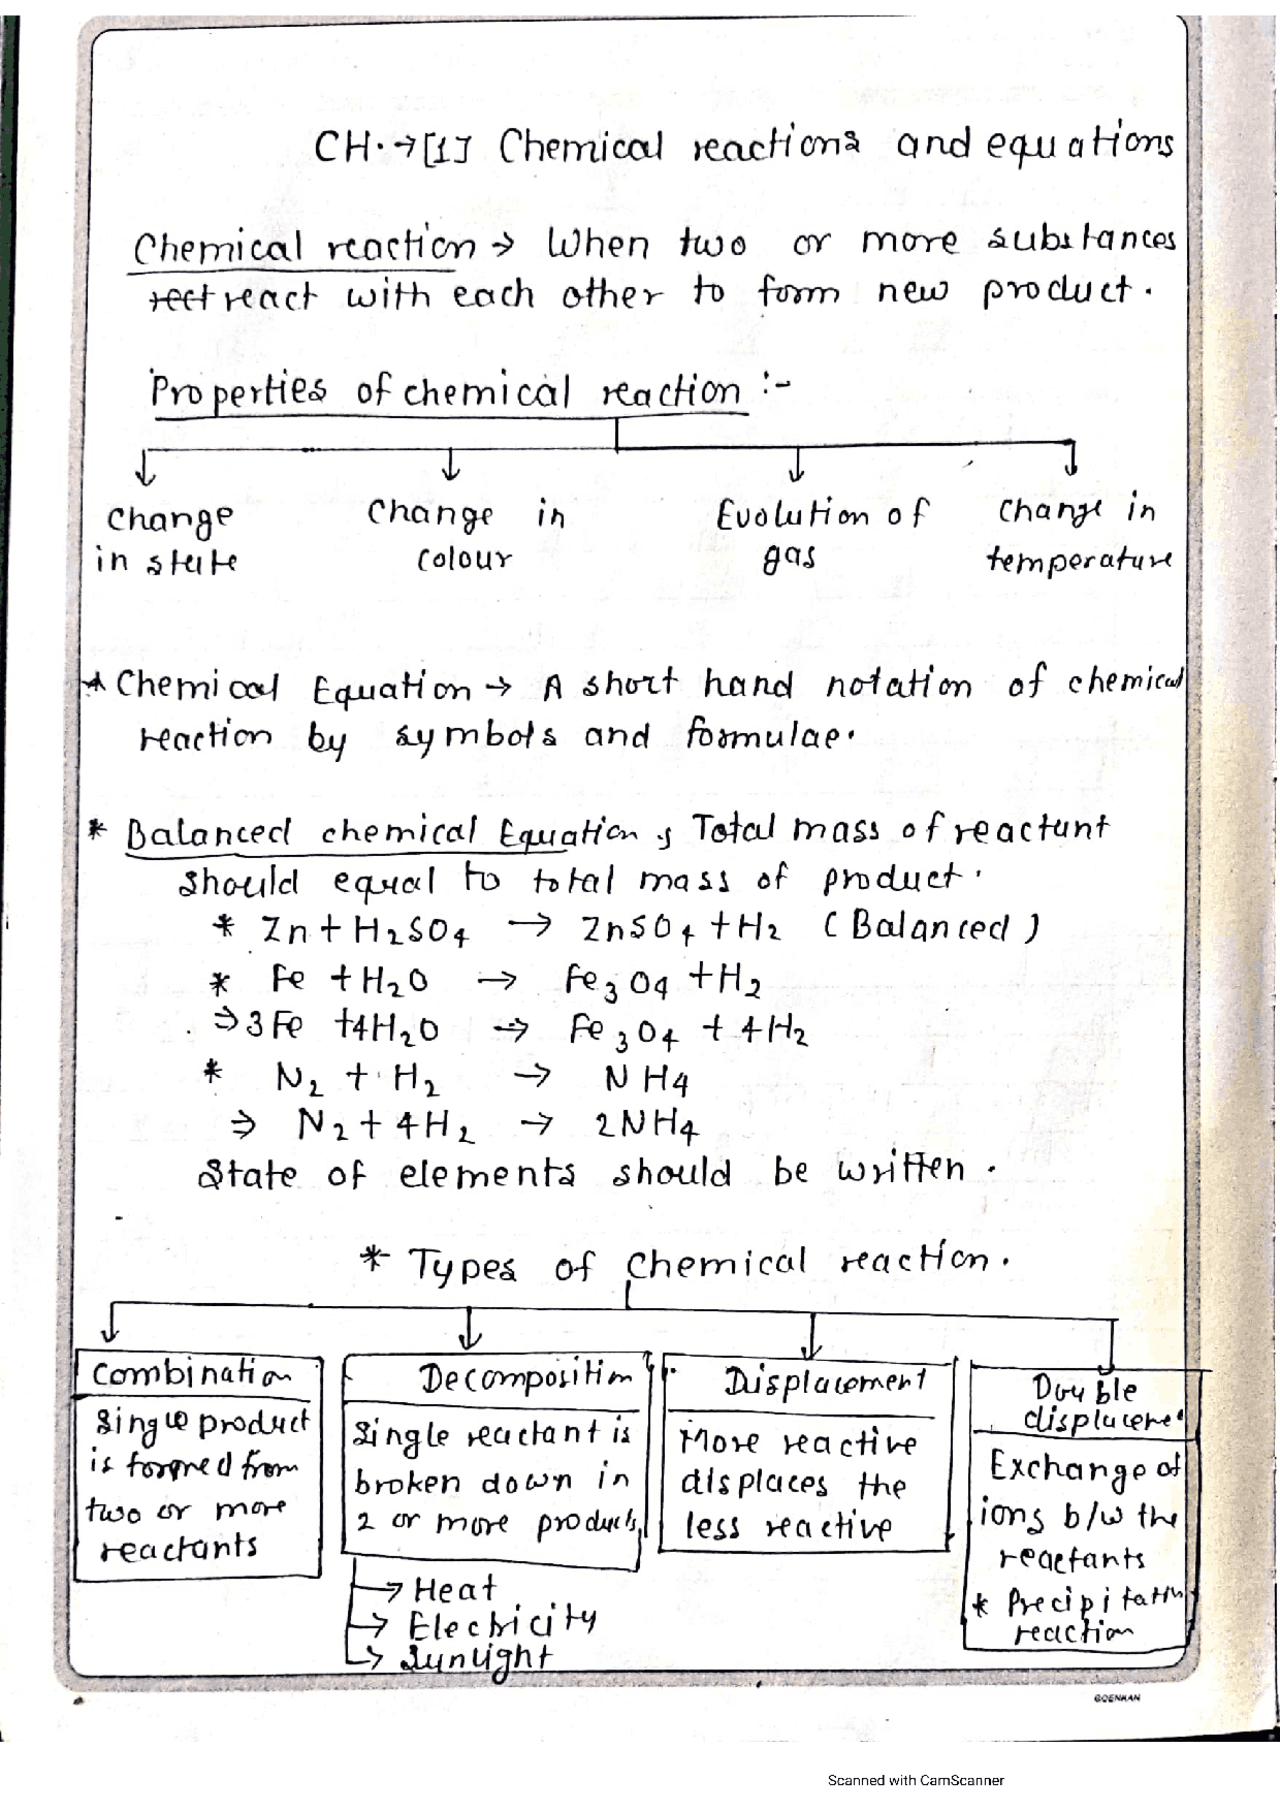 CH.→[1] Chemical reactions and equations
Chemical reaction → When two or more substances
react with each other to form new product.
Properties of chemical reaction :-
Change in state
Change in colour
Evolution of gas
Change in temperature
* Chemical Equation → A short hand notation of chemical
reaction by symbols and formulae.
* Balanced chemical Equation, Total mass of reactant
should equal to total mass of product.
* Zn + H₂SO₄ → ZnSO₄ + H₂ (Balanced)
* Fe + H₂O → Fe₃O₄ + H₂
⇒ 3Fe + 4H₂O → Fe₃O₄ + 4H₂
* N₂ + H₂ → NH₄
⇒ N₂ + 4H₂ → 2NH₄
State of elements should be written.
* Types of chemical reaction.
Combination
Single product
is formed from
two or more
reactants
Decomposition
Single reactant is
broken down in
2 or more products
→ Heat
→ Electricity
→ Sunlight
Displacement
More reactive
displaces the
less reactive
Double
displaceme
Exchange of
ions b/w the
reactants
* Precipitation
reaction
GOENKAN
Scanned with CamScanner